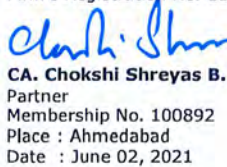 CA. Chokshi Shreyas B.
Partner
Membership No. 100892
Place : Ahmedabad
Date : June 02, 2021